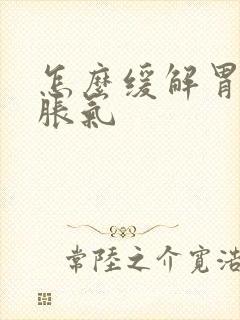 怎麼缓解胃
脹氣
常陸之介寛浩